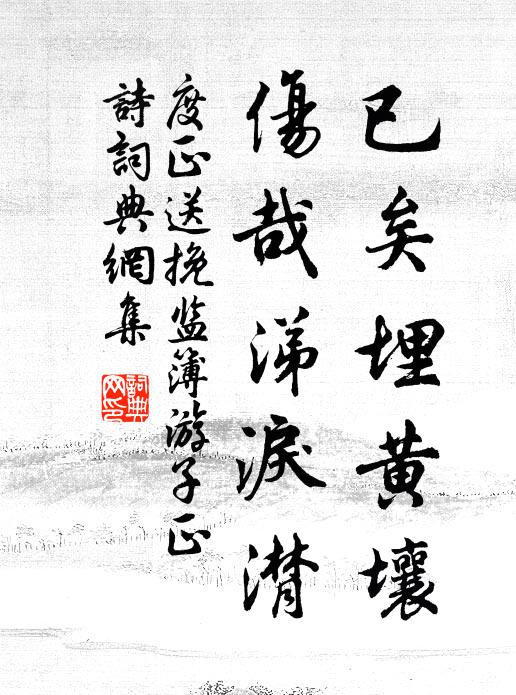 已矣埋黄壤
傷哉涕淚潸
度正送挽监簿游子正
詩詞典網集
詞典
网印